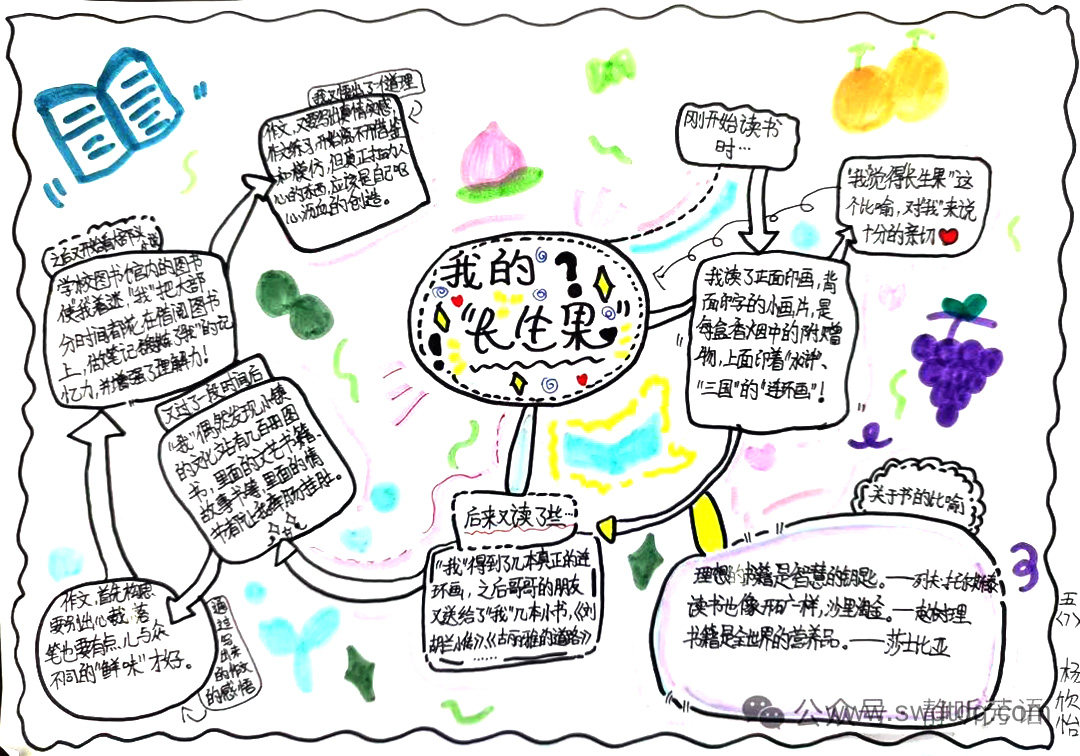 我的
"长生果"
刚开始读书
时…
我读了正面印画,背
面印字的小画片,是
每盒香烟中的附赠
物,上面印着"水浒"、
"三国"的"连环画"!
"我觉得长生果"这
个比喻,对"我"来说
十分的亲切
后来又读了些…
"我"得到了几本真正的连
环画,之后哥哥的朋友
又送给了"我"几本小书,《刘
胡兰小传》《古丽雅的道路》
……
又过了一段时间后
"我"偶然发现小镇
的文化站有几百册图
书,里面的文艺书籍、
故事书等里面的情
节有时让我牵肠挂肚。
作文,首先构思
要别出心裁,落
笔也要有点儿与众
不同的"鲜味"才好。
通过写
出来
的作文
的感悟
之后又开始看
学校图书馆内的图书
使我着迷"我"把大部
分时间都花在借阅图书
上,做笔记锻炼了"我"的记
忆力,并增强了理解力!
我又悟出了一个道理
作文,又要写出真情实感,
作文练习,开始离不开借鉴
和模仿,但真正打动人
心的东西,应该是自己呕
心沥血的创造。
关于书的比喻
理想的书籍是智慧的钥匙。——列夫·托尔斯泰
读书也像开矿一样,沙里淘金。——赵树理
书籍是全世界的营养品。——莎士比亚
五
〈7〉
杨
欣
怡
公众号
www.sw
.com